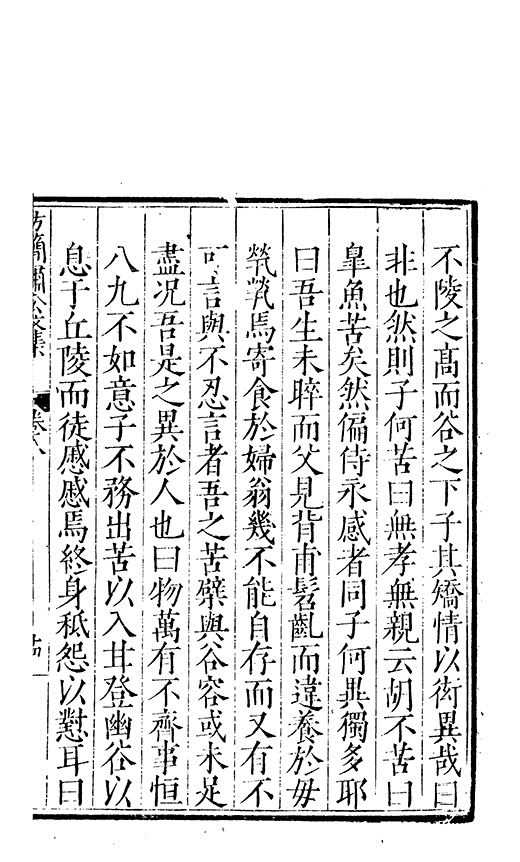 不陵之髙而谷之下子其矯情以衒異哉曰
非也然則子何苦曰無孝無親云胡不苦曰
臯魚苦矣然偏侍永感者同子何異獨多耶
曰吾生未晬而父見背甫髫齓而違養於毋
煢煢焉寄食於婦翁幾不能自存而又有不
可言與不忍言者吾之苦檗與谷容或未足
盡况吾是之異於人也曰物萬有不齊事恒
八九不如意子不務出苦以入甘登幽谷以
息于丘陵而徒慼慼焉終身秪怨以懟耳曰
方簡肅公文集
卷六